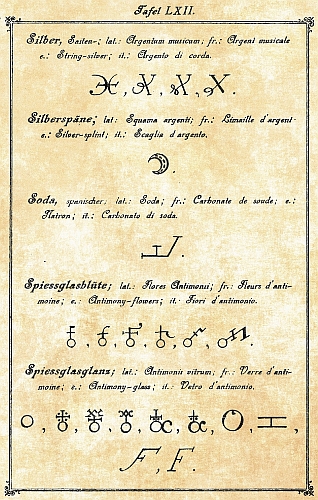 Tafel LXII.
Silber, Saiten-; lat.: Argentum musicum; fr.: Argent musicale
e.: String-silver; it.: Argento di corda.
Silberspäne; lat: Squama argenti; fr.: Limaille d'argent
e.: Silver-splint; it.: Scaglia d'argento.
Soda, spanischer; lat.: Soda; fr.: Carbonate de soude; e.:
Natron; it.: Carbonato di soda.
Spiessglasblüte; lat.: Flores Antimonii; fr.: Fleurs d'anti-
moine; e.: Antimony-flowers; it.: Fiori d'antimonio.
Spiessglasglanz; lat.: Antimonii vitrum; fr.: Verre d'anti-
moine; e.: Antimony-glass; it.: Vetro d'antimonio.